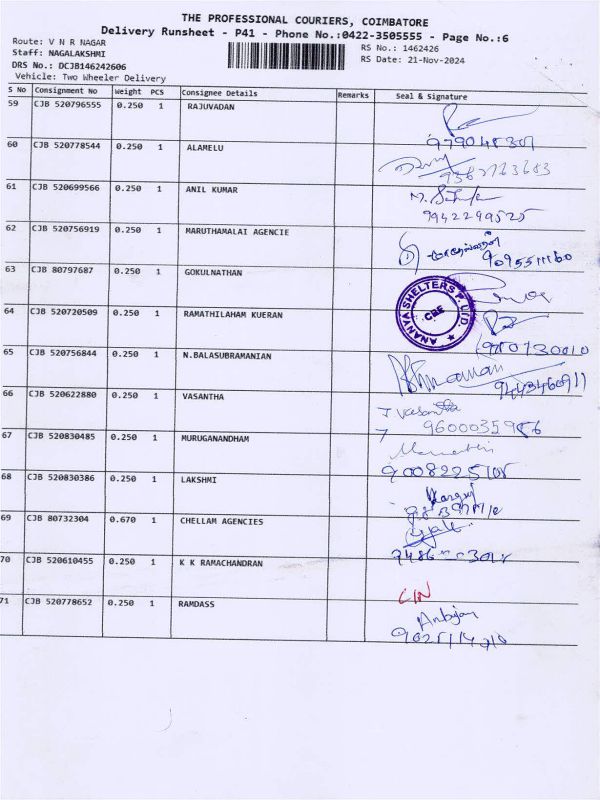 THE PROFESSIONAL COURIERS, COIMBATORE
Delivery Runsheet - P41 - Phone No.:0422-3505555 - Page No.:6
Route: V N R NAGAR
Staff: NAGALAKSHMI
DRS No.: DCJB146242606
Vehicle: Two Wheeler Delivery
RS No.: 1462426
RS Date: 21-Nov-2024
S No Consignment No Weight PCS Consignee Details Remarks Seal & Signature
59 CJB 520796555 0.250 1 RAJUVADAN
60 CJB 520778544 0.250 1 ALAMELU
61 CJB 520699566 0.250 1 ANIL KUMAR
9942299525
62 CJB 520756919 0.250 1 MARUTHAMALAI AGENCIE
63 CJB 80797687 0.250 1 GOKULNATHAN
ANANYA SHELTERS P. LTD.
CBE
64 CJB 520720509 0.250 1 RAMATHILAHAM KUERAN
65 CJB 520756844 0.250 1 N.BALASUBRAMANIAN
9443460911
66 CJB 520622880 0.250 1 VASANTHA
J Vasantha
67 CJB 520830485 0.250 1 MURUGANANDHAM
68 CJB 520830386 0.250 1 LAKSHMI
69 CJB 80732304 0.670 1 CHELLAM AGENCIES
70 CJB 520610455 0.250 1 K K RAMACHANDRAN
71 CJB 520778652 0.250 1 RAMDASS